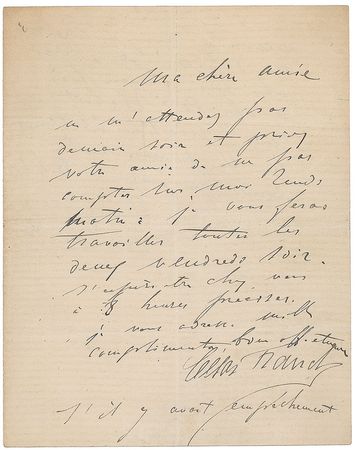 Ma chère amie
ne m'attendez pas
demain soir et priez
votre amie de ne pas
compter sur moi lundi
matin je vous ferai
travailler toutes les
deux vendredi soir.
chez vous
à 8 heures précises.
je vous adresse mille
compliments bien
César Franck
S'il y avait empêchement